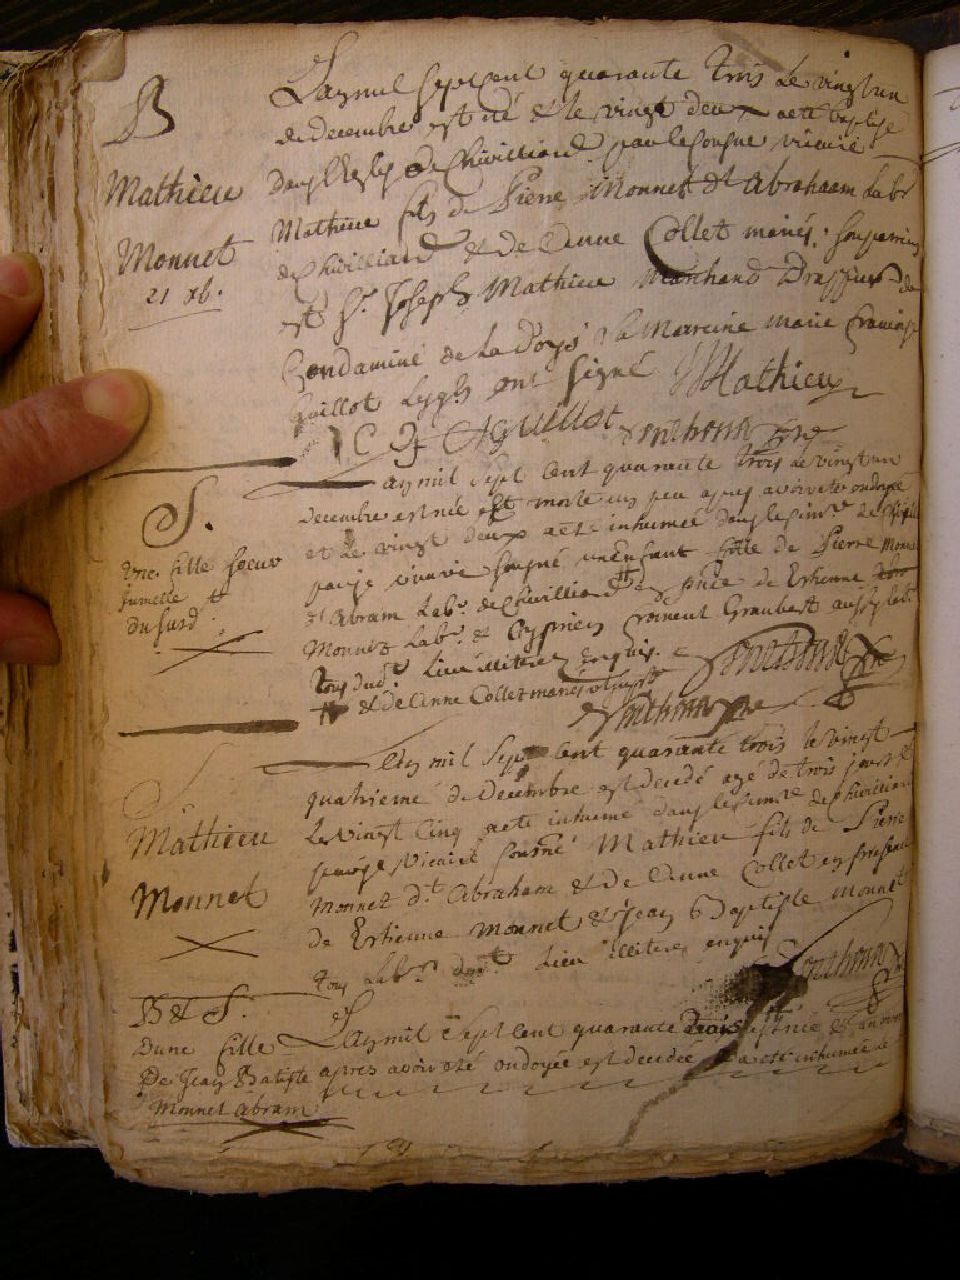 B
Mathieu
Monnet
21 xb.
L'an mil sept cent quarante trois le vingt un
de decembre est né et le vingt deux a eté baptisé
dans l'eglise de Chivilliard par le soussigné vicaire
Mathieu fils de Pierre Monnet dt Abrahaam Labr
de Chivilliard et de Anne Collet mariés. son parrain
est Sr. Joseph Mathieu Marchand Drappier de
Condamine de la Doys la Mareine Marie
Guillot lesqls ont signé Mathieu
Guillot
S.
une fille soeur
jumelle
du susd.
L'an mil sept cent quarante trois le vingt un
decembre est née et morte un peu apres avoir eté ondoyée
et le vingt deux a eté inhumée dans le cimre de
par je vicaire soussigné un enfant fille de Pierre Monnet
dt Abram Labr. de Chivilliard en pnce de Estienne
Monnet Labr. et Cyprien Groubert aussy labr
tous dudt lieu illiteres enquis.
et de Anne Collet mariés
Mathieu
Monnet
L'an mil sept cent quarante trois le vingt
quatrieme de Decembre est decedé agé de trois jours et
le vingt cinq a eté inhumé dans le cimre de Chivilliard
par je vicaire soussigné Mathieu fils de Pierre
Monnet dt Abraham et de Anne Collet en presence
de Estienne Monnet et Jean Baptiste Monnet
tous Labrs dudt Lieu illiteres enquis
B et S.
D'une fille
De Jean Batiste
Monnet abram
L'an mil sept cent quarante trois est née et
apres avoir eté ondoyée est decedée et a eté inhumée le